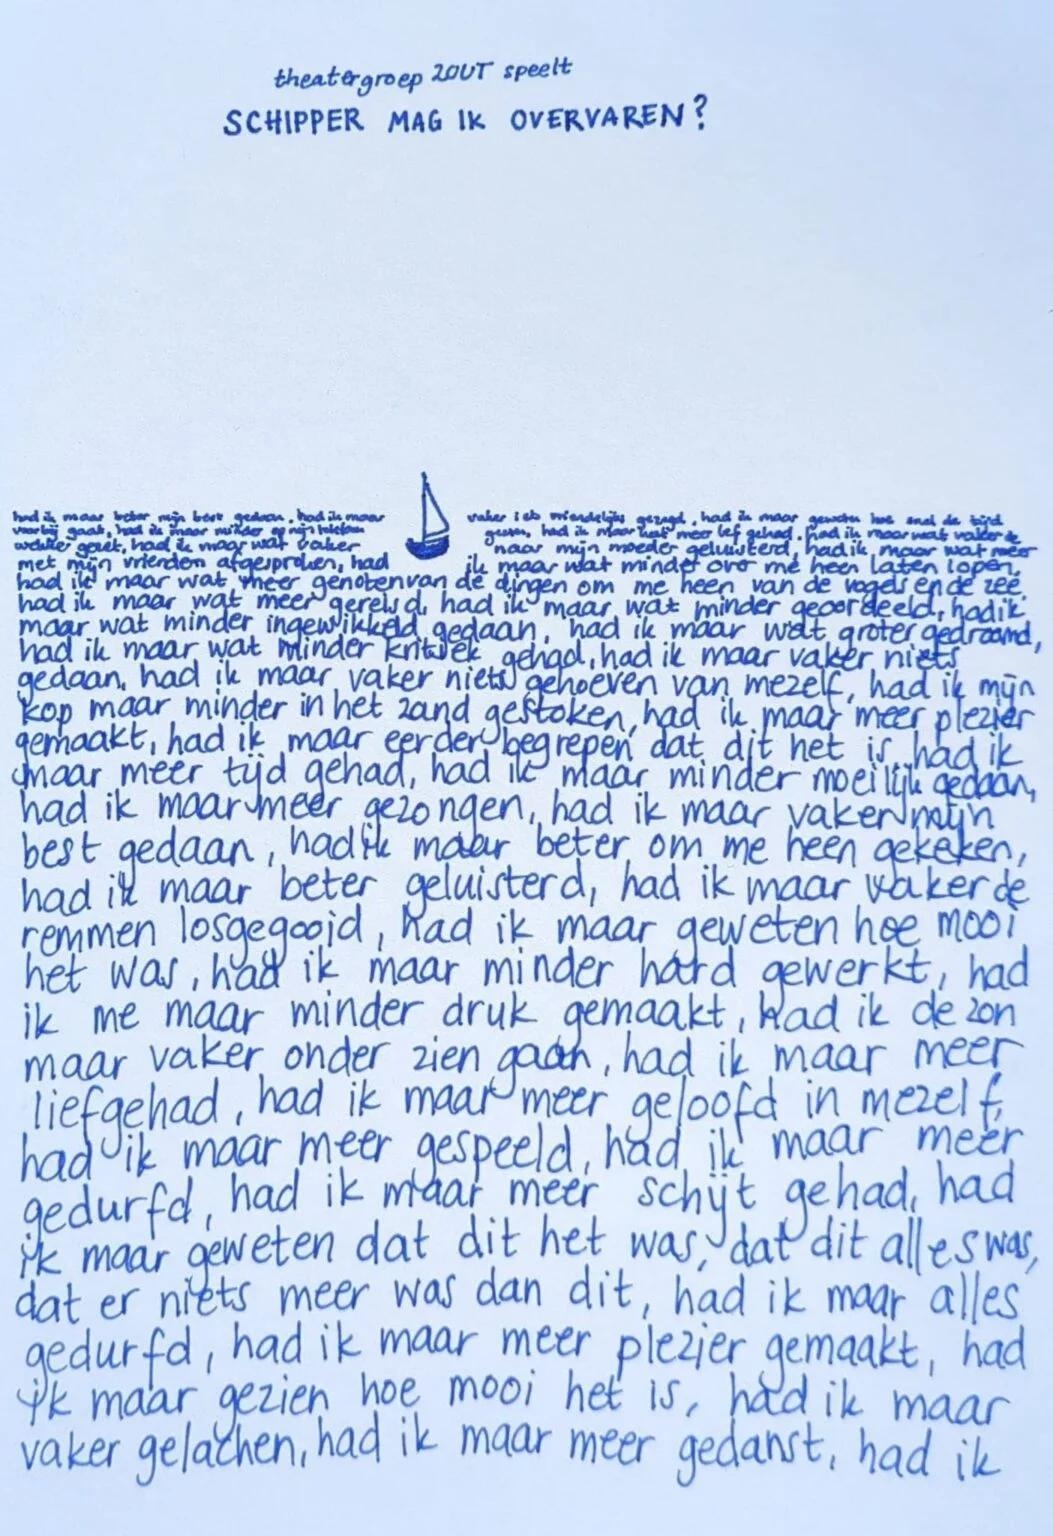 theatergroep ZOUT speelt
SCHIPPER MAG IK OVERVAREN?
had ik maar beter mijn best gedaan, had ik maar vaker iets vriendelijks gezegd, had ik maar geweten hoe snel de tijd
voorbij gaat, had ik maar minder op mijn telefoon gezeten, had ik maar wat meer lef gehad, had ik maar wat vaker de
gezet, had ik maar wat vaker naar mijn moeder geluisterd, had ik maar wat meer
met mijn vrienden afgesproken, had ik maar wat minder over me heen laten lopen,
had ik maar wat meer genoten van de dingen om me heen van de vogels en de zee,
had ik maar wat meer gereisd, had ik maar wat minder geoordeeld, had ik
maar wat minder ingewikkeld gedaan, had ik maar wat groter gedroomd,
had ik maar wat minder kritiek gehad, had ik maar vaker niets
gedaan, had ik maar vaker niets gehoeven van mezelf, had ik mijn
kop maar minder in het zand gestoken, had ik maar meer plezier
gemaakt, had ik maar eerder begrepen dat dit het is, had ik
maar meer tijd gehad, had ik maar minder moeilijk gedaan,
had ik maar meer gezongen, had ik maar vaker mijn
best gedaan, had ik maar beter om me heen gekeken,
had ik maar beter geluisterd, had ik maar vaker de
remmen losgegooid, had ik maar geweten hoe mooi
het was, had ik maar minder hard gewerkt, had
ik me maar minder druk gemaakt, had ik de zon
maar vaker onder zien gaan, had ik maar meer
liefgehad, had ik maar meer geloofd in mezelf,
had ik maar meer gespeeld, had ik maar meer
gedurfd, had ik maar meer schijt gehad, had
ik maar geweten dat dit het was, dat dit alles was,
dat er niets meer was dan dit, had ik maar alles
gedurfd, had ik maar meer plezier gemaakt, had
ik maar gezien hoe mooi het is, had ik maar
vaker gelachen, had ik maar meer gedanst, had ik